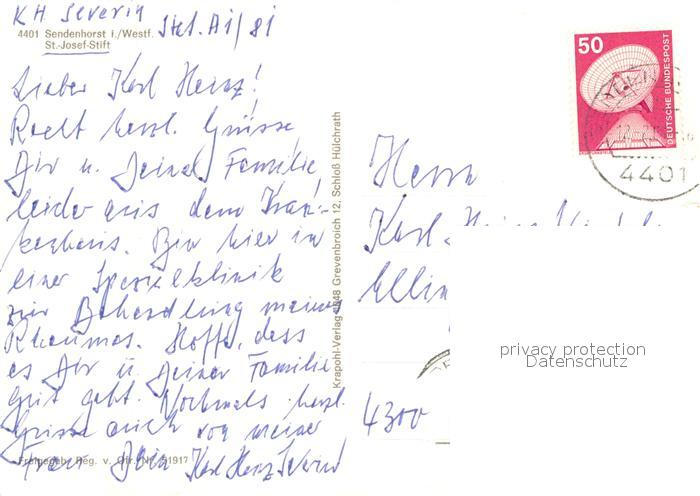 KH Severin
4401 Sendenhorst i./Westf. Stat. A1/81
St.-Josef-Stift
Lieber Karl Heinz!
Recht herzl. Grüsse
Dir u. Deiner Familie
leider aus dem Kran-
kenhaus. Bin hier in
einer Spezialklinik
zur Behandlung meines
Rheumas. Hoffe, dass
es Dir u. Deiner Familie
gut geht. Nochmals herzl.
Grüsse auch von meiner
Frau Dein Karl Heinz Severin
Freigegeb. Reg. v. Nr. 51917
Krapohl-Verlag 4048 Grevenbroich 12, Schloß Hülchrath
50
DEUTSCHE BUNDESPOST
4401
Herrn
Karl-Heinz
Ellin
4300
privacy protection
Datenschutz